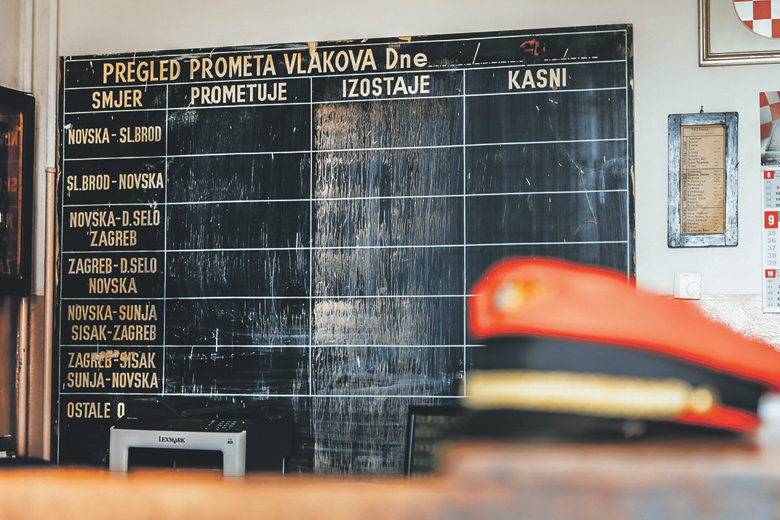 PREGLED PROMETA VLAKOVA Dne
SMJER PROMETUJE IZOSTAJE KASNI
NOVSKA - SL.BROD
SL.BROD - NOVSKA
NOVSKA - D.SELO
ZAGREB
ZAGREB - D.SELO
NOVSKA
NOVSKA - SUNJA
SISAK - ZAGREB
ZAGREB - SISAK
SUNJA - NOVSKA
OSTALE O
LEXMARK
8
9
35
36
37
38
39
10